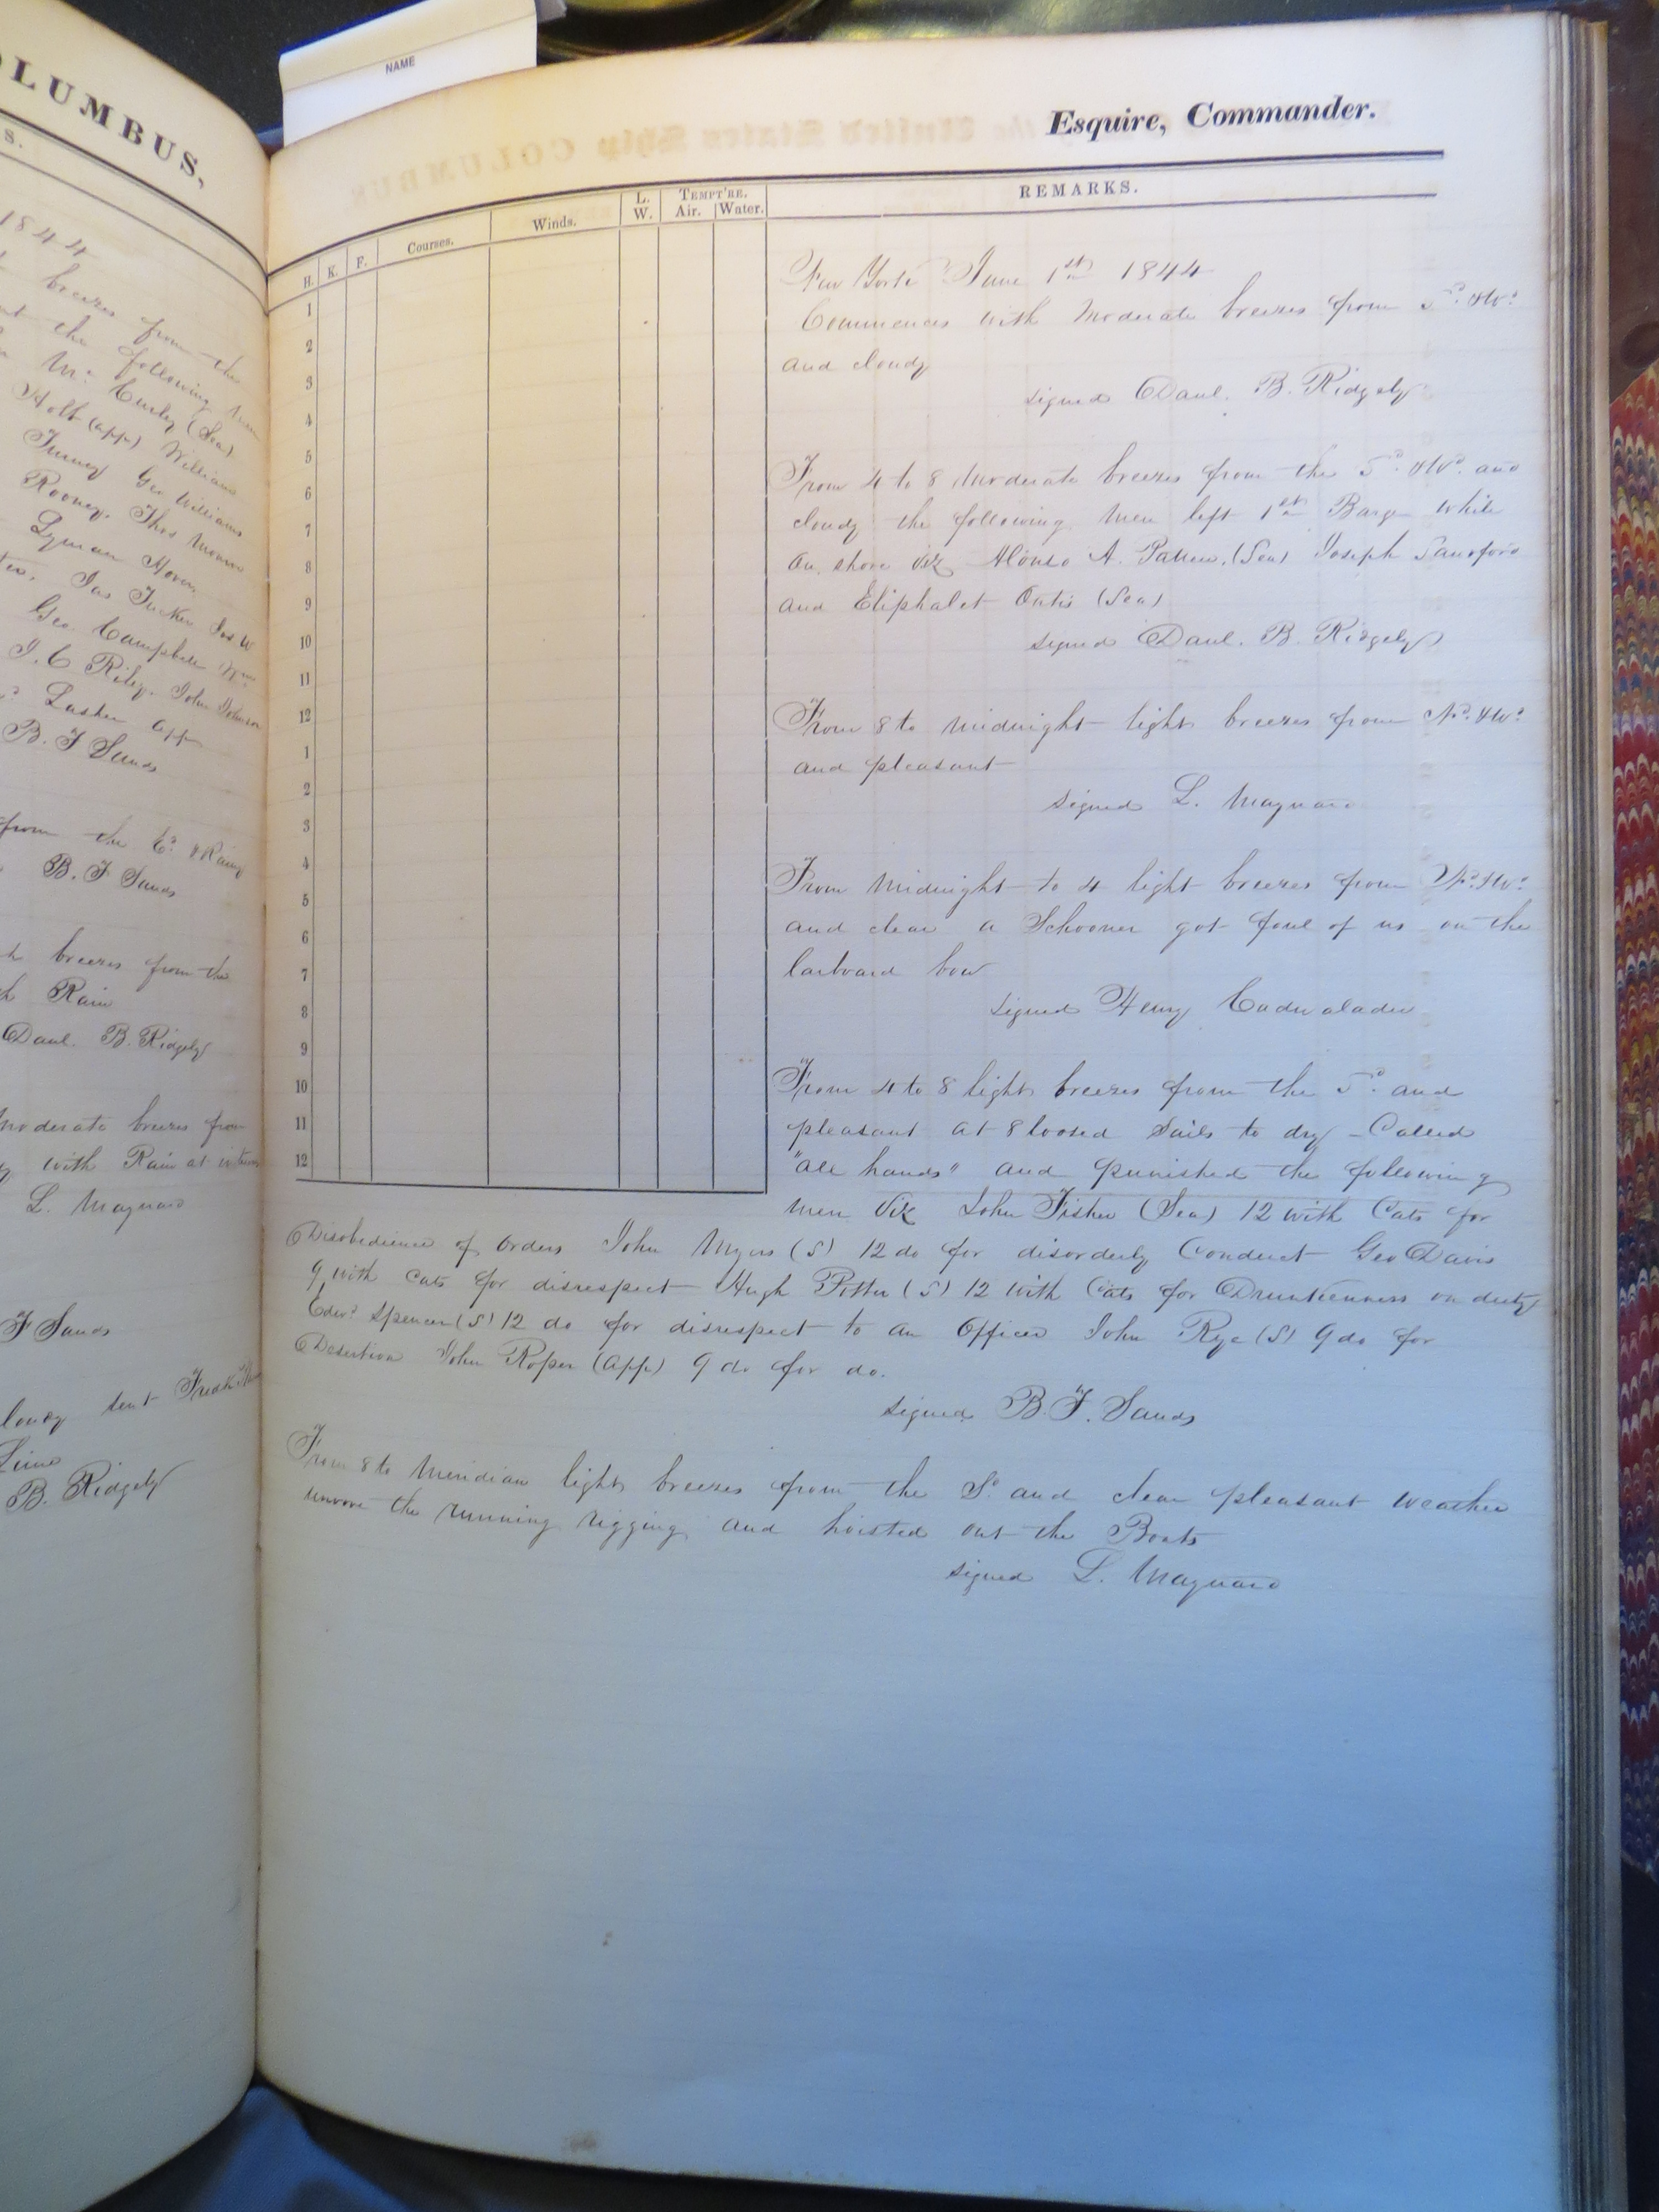 NAME
OLUMBUS,
S.
1844
breezes from the
the following men
Mc Curley (Sea)
Holt (app) William
Turney Geo Williams
Rooney. Thos
Lyman
Jas Tucker Jas W
Geo Campbell Wm
J. C Riley. John Johnson
Lasher app
B. F Sands
from the Ed. & Rainy
B. F Sands
breezes from the
Rain
Danl. B. Ridgely
moderate breezes from
with Rain at
L. Maynard
F Sands
sent Fredk
B. Ridgely
Esquire, Commander.
H. K. F. Courses. Winds. L. W. TEMPT'RE. Air. Water. REMARKS.
1
2
3
4
5
6
7
8
9
10
11
12
1
2
3
4
5
6
7
8
9
10
11
12
New York June 1st 1844
Commences with Moderate breezes from Sd. & Wd.
and cloudy
signed Danl. B. Ridgely
From 4 to 8 Moderate breezes from the Sd. & Wd. and
cloudy the following Men left 1st Barge while
on shore viz Alonso A. (Sea) Joseph Sandford
and Eliphalet (Sea)
signed Danl. B. Ridgely
From 8 to midnight light breezes from Nd. & Wd.
and pleasant
signed L. Maynard
From Midnight to 4 light breezes from Nd. & Wd.
and clear a Schooner got foul of us on the
larboard bow
signed Henry Cadwalader
From 4 to 8 light breezes from the Sd. and
pleasant at 8 loosed Sails to dry - Called
"all hands" and punished the following
men Viz John Fisher (Sea) 12 with Cats for
Disobedience of Orders John Myers (S) 12 do for disorderly Conduct Geo Davis
9 with Cats for disrespect Hugh Potter (S) 12 with Cats for Drunkenness on duty
Edwd Spencer (S) 12 do for disrespect to an Officer John Rye (S) 9 do for
Desertion John Roper (App) 9 do for do.
signed B. F. Sands
From 8 to Meridian light breezes from the Sd and clear pleasant weather
unrove the running rigging and hoisted out the Boats
signed L. Maynard